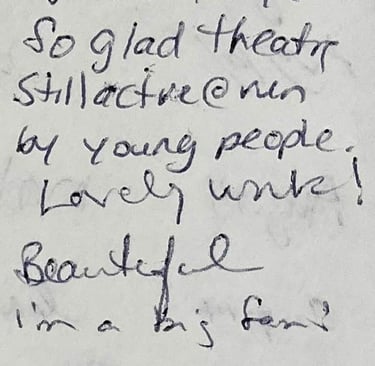 So glad theatre
still active @ run
by young people.
Lovely work!
Beautiful
i'm a big fan!